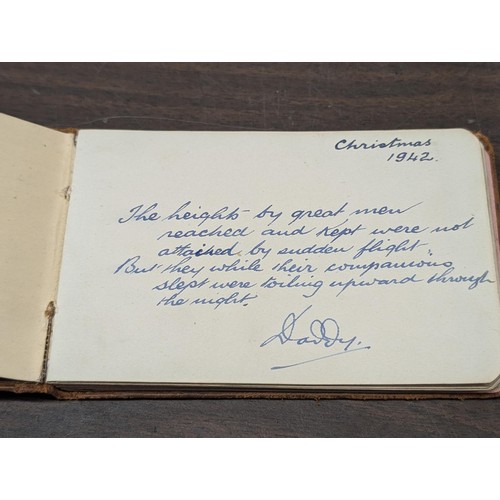 Christmas
1942.
The heights by great men
reached and kept were not
attained by sudden flight
But they while their companions
slept were toiling upward through
the night.
Daddy.